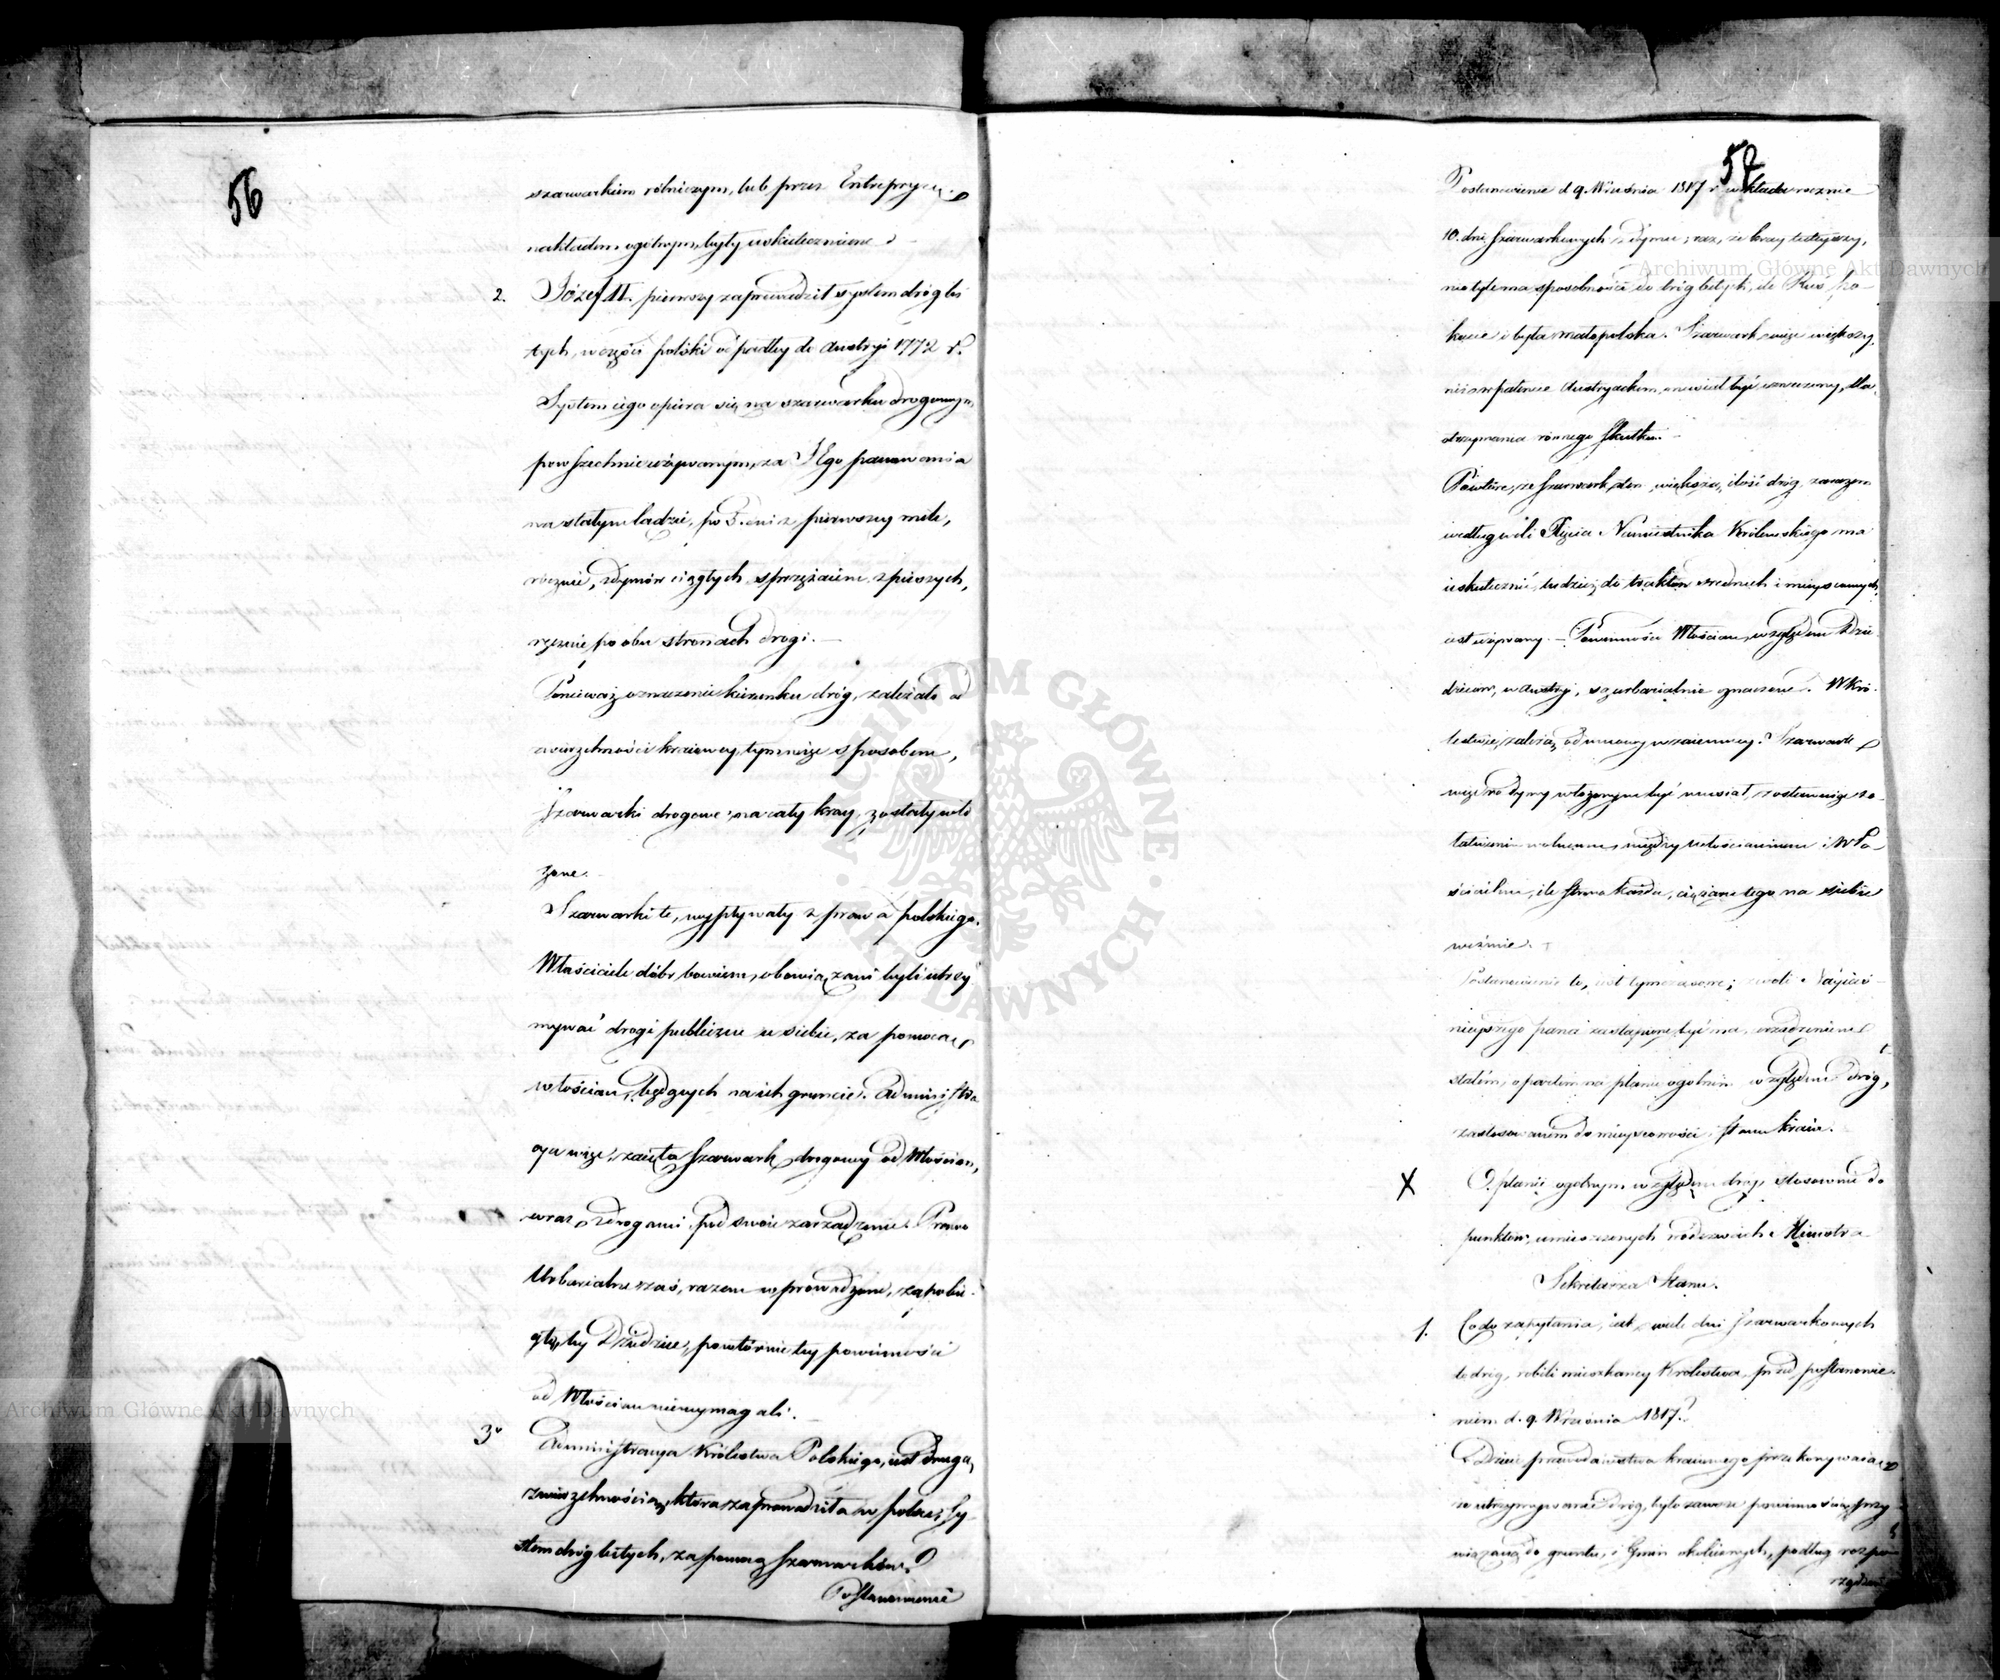 56
szarwarkiem rólniczym, lub przez Entrepryzę
nakładem ogólnym, były uskutecznione.
2. Józef II. pierwszy zaprowadził system dróg bi
tych, w części polski odpadłey do Austryi 1772 r.
System iego opiera się na szarwarku drogowym,
powszechnie używanym, za Jego panowania
na stałym lądzie, po 3. dni z pierwszy mili,
rocznie, z dymów ciągłych sprzężaiem z pieszych,
ręcznie po obu stronach drogi. —
Ponieważ oznaczenie kierunku dróg, zależało od
zwierzchności kraiowey, tymwięc sposobem,
Szarwarki drogowe, na cały kray, zostały wło
żone.
Szarwarki te, wypływały z prawa polskiego.
Właściciele dóbr bowiem, obowiązani byli utrzy
mywać drogi publiczne u siebie, za pomocą
włościan, będących na ich gruncie. Administra
cya więc, zaięła szarwark drogowy od Włościan,
wraz z drogami, pod swoie zarządzenie. Prawo
Urbarialne zaś, razem wprowadzone, zapobie
gło, by Dziedzice, powtórnie tey powinności
od Włościan niewymagali.
3° Administracya Królestwa Polskiego, iest drugą,
zwierzchnością, która zaprowadziła w polsce, Sy
stem dróg bitych, za pomocą szarwarków.
Postanowienie
57
Postanowienie d 9. Września 1817 r. wkłada rocznie
10. dni szarwarkowych z dymu; raz, że kray tuteyszy,
nie tyle ma sposobności do dróg bitych, ile Ruś, po
kucie i była małopolska. Szarwark więc większy,
niż w patencie Austryackim, musiał być oznaczony, dla
otrzymania równego skutku. —
Powtóre, że szarwark ten, większą ilość dróg, zarazem
według woli Xięcia Namiestnika Królewskiego ma
uskutecznić, tudzież do traktów średnich i mieyscowych,
iest używany. — Powinności Włościan, względem Dzie
dziców, w Austryi, są urbarialnie oznaczone. W Kró
lestwie, zależą, od umowy wzaiemney. Szarwark
więc na dymy włożonym być musiał, zostawuiąc zo
stawieniu wolnemu, między włościaninem i Wła
ścicielem, ile strona każda, ciężaru tego na siebie
weźmie. —
Postanowienie to, iest tymczasowe; z woli Nayiaś
nieyszego pana zastąpione być ma, urządzeniem
stałém, opartém na planie ogólnym względem dróg,
zastosowaném do mieyscowości i stanu kraiu.
X O planie ogólnym względem dróg, stosownie do
punktów, umieszczonych w odezwach Ministra
Sekretarza Stanu.
1. Co do zapytania, iak wiele dni szarwarkowych
do dróg, robili mieszkańcy Królestwa, przed postanowie
niem d. 9. Września 1817?
Dzieie prawodawstwa kraiowego przekonywaią
że utrzymywanie dróg, było zawsze powinnością, przy
wiązaną do gruntu, i Gmin okolicznych, podług rozpo
rządzeń
ARCHIWUM GŁÓWNE AKT DAWNYCH
Archiwum Główne Akt Dawnych
Archiwum Główne Akt Dawnych